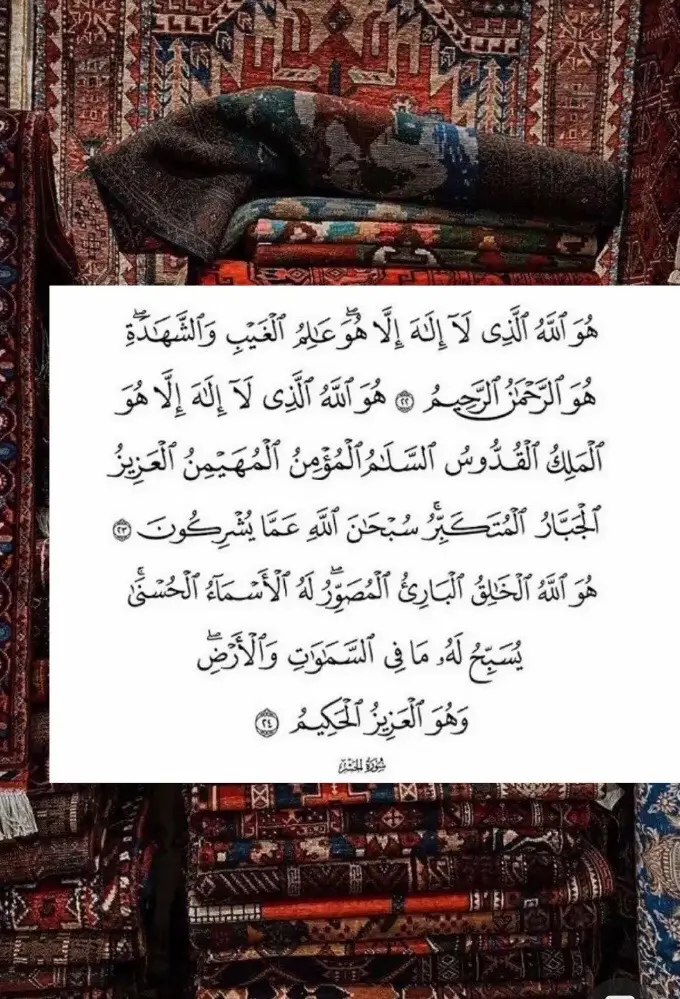 هُوَ ٱللَّهُ ٱلَّذِى لَآ إِلَٰهَ إِلَّا هُوَۖ عَٰلِمُ ٱلْغَيْبِ وَٱلشَّهَٰدَةِۖ
هُوَ ٱلرَّحْمَٰنُ ٱلرَّحِيمُ ٢٢ هُوَ ٱللَّهُ ٱلَّذِى لَآ إِلَٰهَ إِلَّا هُوَ
ٱلْمَلِكُ ٱلْقُدُّوسُ ٱلسَّلَٰمُ ٱلْمُؤْمِنُ ٱلْمُهَيْمِنُ ٱلْعَزِيزُ
ٱلْجَبَّارُ ٱلْمُتَكَبِّرُۚ سُبْحَٰنَ ٱللَّهِ عَمَّا يُشْرِكُونَ ٢٣
هُوَ ٱللَّهُ ٱلْخَٰلِقُ ٱلْبَارِئُ ٱلْمُصَوِّرُۖ لَهُ ٱلْأَسْمَآءُ ٱلْحُسْنَىٰۚ
يُسَبِّحُ لَهُۥ مَا فِى ٱلسَّمَٰوَٰتِ وَٱلْأَرْضِۖ
وَهُوَ ٱلْعَزِيزُ ٱلْحَكِيمُ ٢٤
سُورَةُ الحَشْرِ